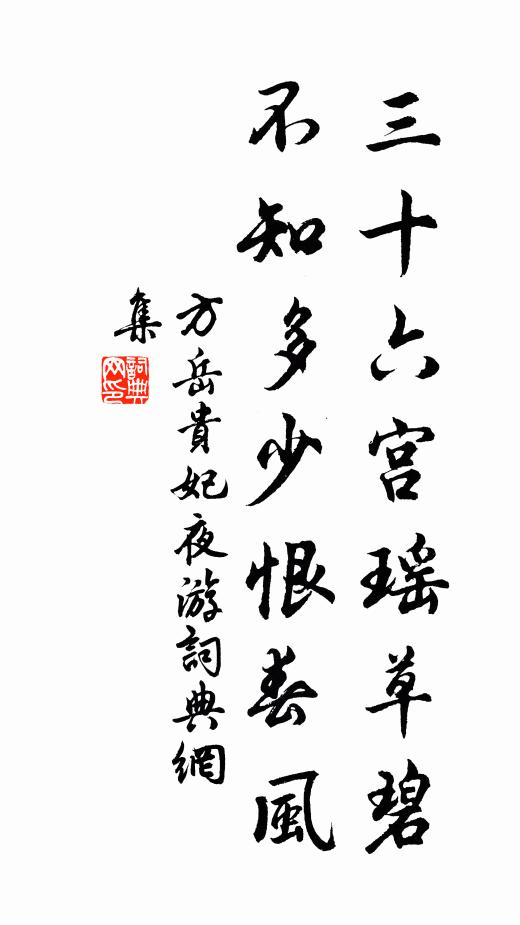 三十六宫瑶草碧
不知多少恨春風
方岳貴妃夜游詞典網
集
詞典网印